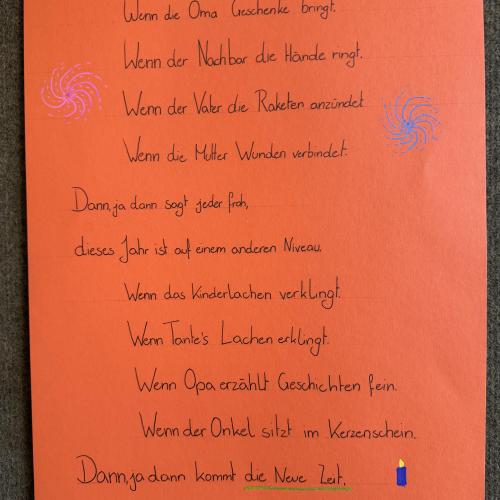 Wenn die Oma Geschenke bringt.
Wenn der Nachbar die Hände ringt.
Wenn der Vater die Raketen anzündet
Wenn die Mutter Wunden verbindet.
Dann, ja dann sagt jeder froh,
dieses Jahr ist auf einem anderen Niveau.
Wenn das Kinderlachen verklingt.
Wenn Tante's Lachen erklingt.
Wenn Opa erzählt Geschichten fein.
Wenn der Onkel sitzt im Kerzenschein.
Dann, ja dann kommt die Neue Zeit.